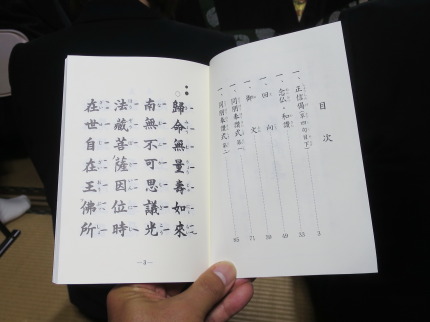 目次
一、正信偈(草四句目下) 3
一、念仏・和讃 49
一、回向 59
一、御文 71
一、同朋奉讃式 第一
一、同朋奉讃式 第二 95
歸命無量壽如來
南無不可思議光
法藏菩薩因位時
在世自在王佛所
—3—